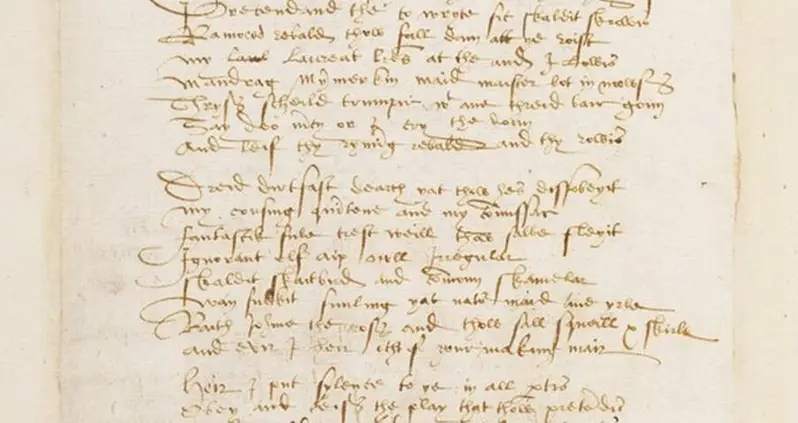 Pretendand the to wryte sic skaldit skrowis
Ramowd rebald thow fall doun att ye roist
My laureat lres at the and I lowis
Mandrag mymerkin maid maister bot in mowis
Thrys scheild trumpir wt ane threid bair goun
Say deo mcy or I cry the doun
And leif thy ryming rebald and thy rowis
Dreid dirtfast dearch yat thow hes dissobeyit
My cousing quintene and my comissar
fantastik fule trest weill thow salbe fleyit
Ignorant elf aip owll Irregular
Skaldit skaitbird and comoun skamelar
Wan fukkit funling yat natr maid ane yrle
Baith Johine the ross and thow sall squeill & skirle
and evir I heir ocht of your making mair
Heir I put sylence to ye in all ptis
Obey and ceis the play that thow pretendis